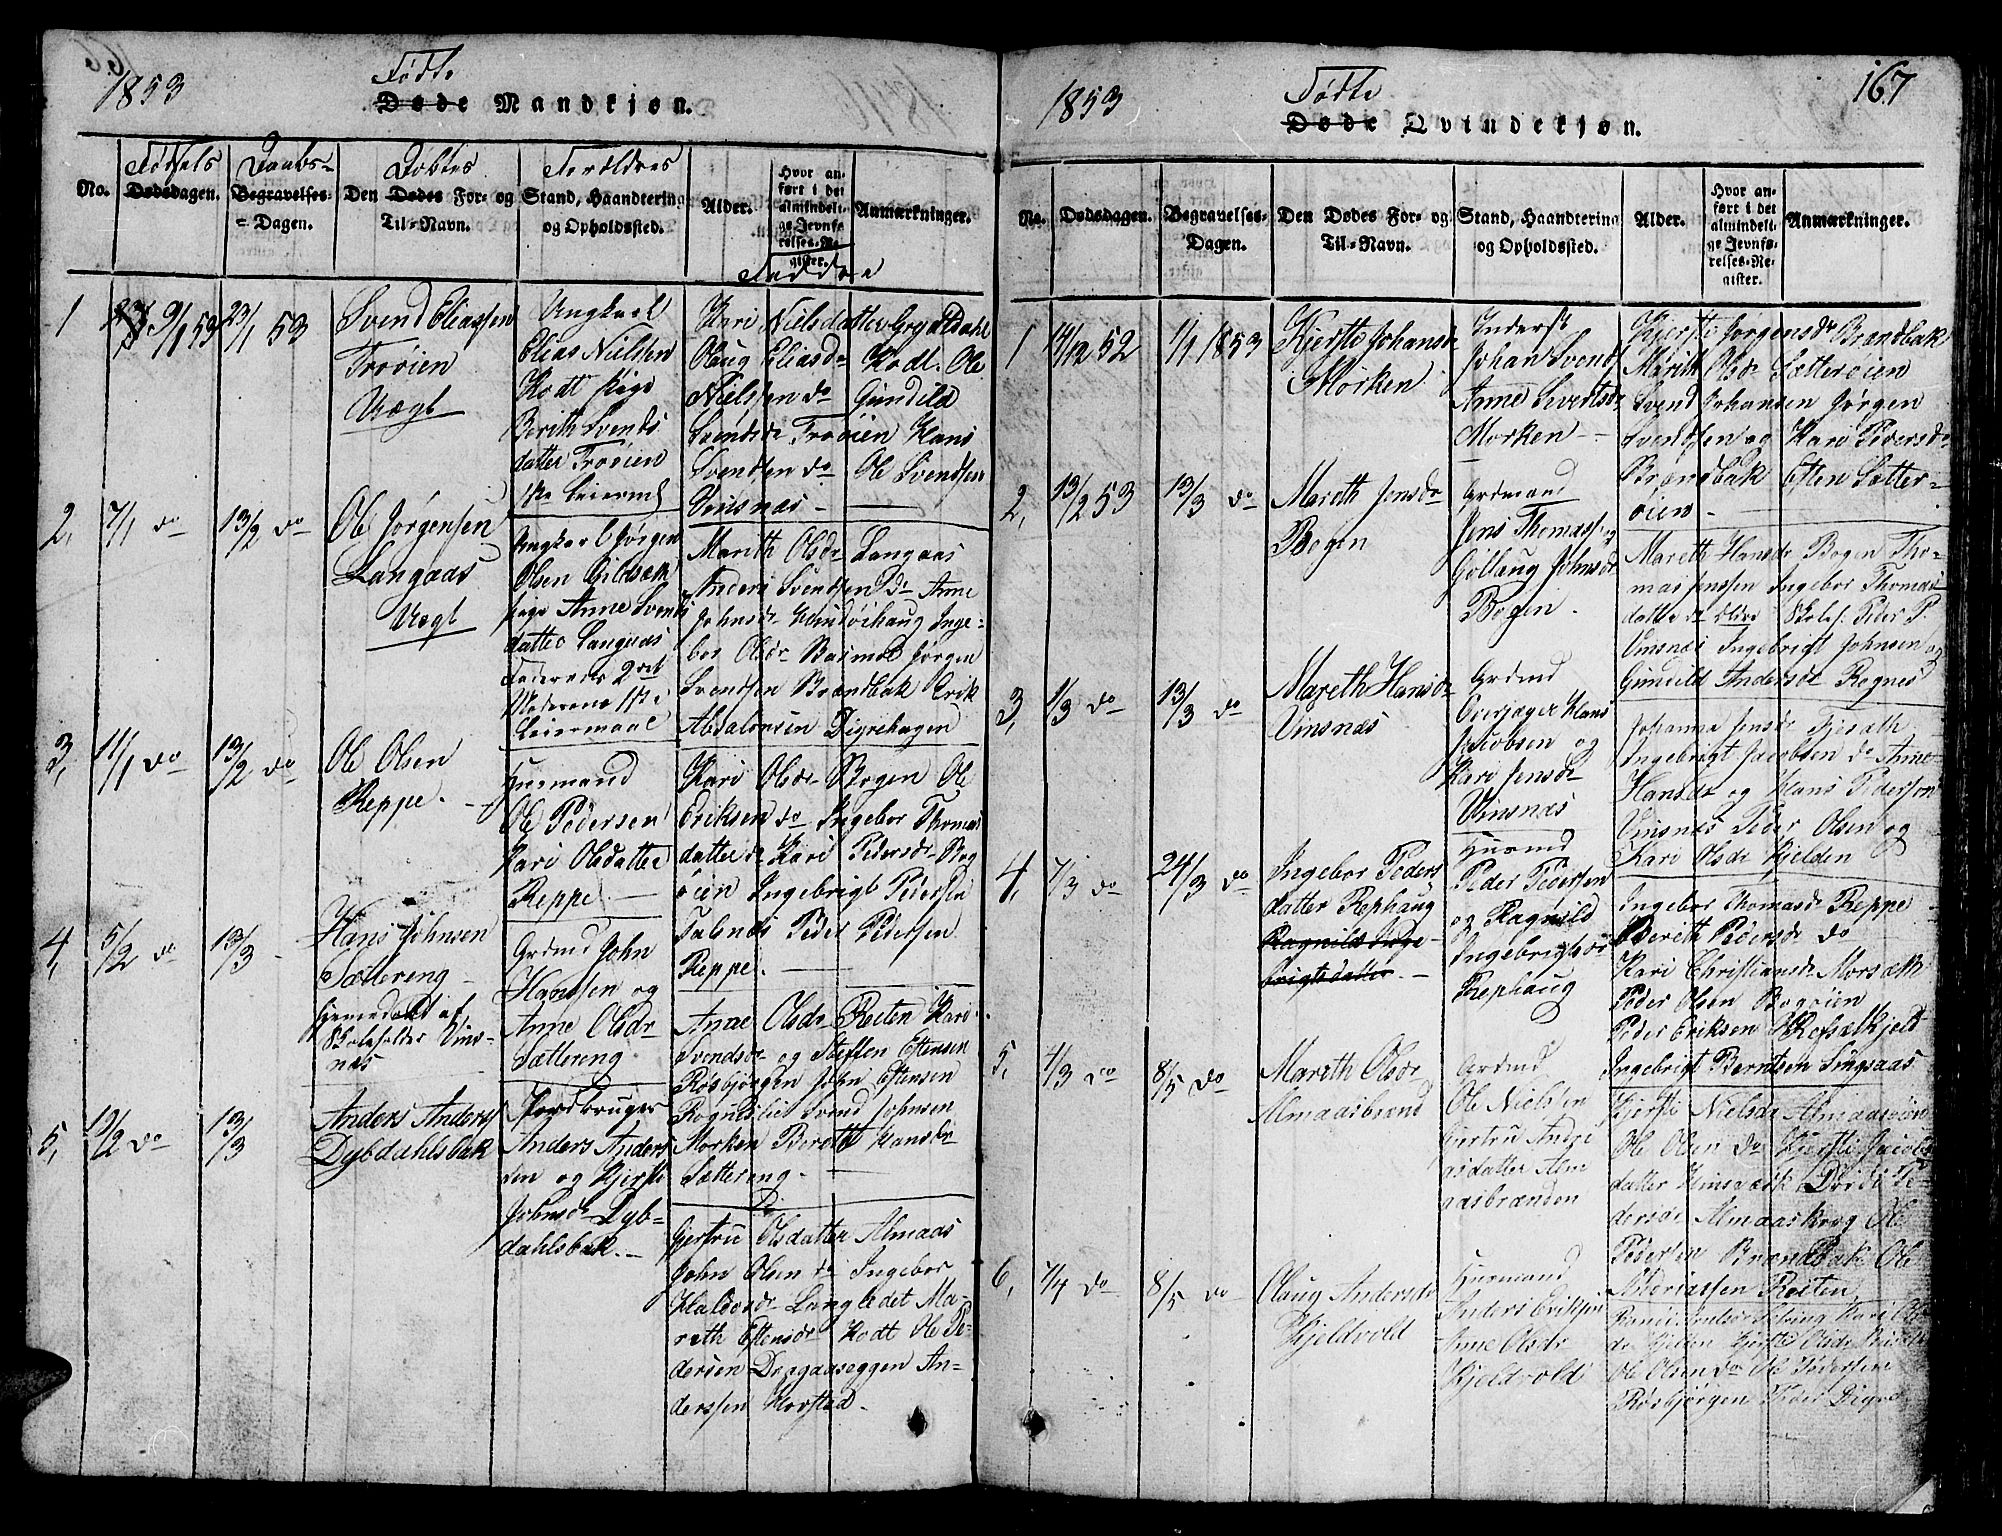 1853
Fødte
Døde Mandkjøn.
No.
Fødsels
Dødsdagen.
Daabs-
Begravelses-
Dagen.
Døbtes
Den Dødes For- og
Til-Navn.
Forældres
Stand, Haandtering
og Opholdssted.
Alder.
Hvor an-
ført i det
almindeli-
ge Jevnfø-
relses-Re-
gister.
Anmærkninger.
Faddere
1
9/1 53
23/1 53
Svend Eliassen
Troøien
Vægl
Ungkarl
Elias Nielsen
Hodt pige
Berith Svends
datter Troøien
Kari Nielsdatter Grydtdahl
Olaug Eliasdr Hodt. Ole
Nielsen do Gunild
Svendsdr Troøien Hans
Svendsen do Ole Svendsen
Vinsnæs -
2,
7/1 do
13/2 do
Ole Jørgensen
Langaas
Vægl
Ungkarl Jørgen
Olsen
pige Anne Svends
datter Langaas
Faderens 2det
Moderens 1ste
Leiermaal
Marith Olsdr Langaas
Anders Svendsen do Anne
Johnsdr Inge-
bor Olsdr Jørgen
Svendsen Brændbak Erik
Absalonsen Digrehagen
3,
11/1 do
13/2 do
Ole Olsen
Reppe. -
Huusmand
Ole Pedersen
Kari Olsdatter
Reppe -
Kari Olsdr Bogen Ole
Eriksen do Ingebor Thomas
datter do Kari Pedersdr Bog
øien Ingebrigt Pedersen
Peder Pedersen
Reppe. -
4,
5/2 do
13/3 -
Hans Johnsen
Sættereng -
hjemmedøbt af
Skoleholder Vins-
næs
Grdmd John
Hanssen og
Anne Olsdr
Sættereng
Anne Olsdr Roiten Kari
Svendsdr og Steffen Estensen
Røsbjørgen John Estensen
Svend Johnsen
Morken Bereth Hansdr
Sættereng -
5,
19/2 do
13/3
Anders Anders
Dybdahlsbak
Jordbruger
Anders Anders
sen og Kjersti
Johnsdr Dyb-
dahlsbak. -
Gjertru Olsdatter Almaas
John Olsen do Ingebor
Haldorsdr Langledet Ma-
reth Estensdr Hodt Ole Pe-
dersen Dragaaseggen An-
derssen Horstad -
1853
Fødte
Døde Qvindekjøn.
167
No.
Dødsdagen.
Begravelses-
Dagen.
Den Dødes For- og
Til-Navn.
Stand, Haandtering
og Opholdssted.
Alder.
Hvor an-
ført i det
almindeli-
ge Jevnfø-
relses-Re-
gister.
Anmærkninger.
1
14/12 52
1/1 1853
Kjersti Johansdr
Morken
Inderst
Johan Svends
Anne Sivertsdr
Morken -
Kjersti Jørgensdr Brændbak
Marith Olsdr Sætterøien
Svend Johansen Jørgen
Svendsen og Kari Pedersdr
Brændbak Esten Sætter-
øien -
2,
13/2 53
13/3 do
Mareth Jensdr
Bogen
Grdmand
Jens Thomassen og
Gollaug Johnsdr
Bogen.
Mareth Hansdr Bogen Tho-
mas Jenssen Ingebor Thomas
datter do Skolef. Peder P.
Vinsnæs Ingebrigt Johnsen og
Gunild Andersdr Rognes
3,
1/3 do
13/3 do
Mareth Hansdr
Vinsnæs
Grdmd
Overjæger Hans
Jacobsen og
Kari Jensdr
Vinsnæs
Johanna Jensdr Fjerath
Ingebrigt Jacobsen do Anne
Hansdr og Hans Pedersen
Vinsnæs Peder Olsen og
Kari Olsdr Kjelden
4,
7/3 do
24/3 do
Ingebor Peders
datter Rephaug
Ragnild Inge-
brigtsdatter. -
Husmd
Peder Pedersen
og Ragnild
Ingebrigtsdr
Rephaug
Ingebor Thomasdr Reppe
Bereth Pedersdr do
Kari Christiansdr Morsæth
Peder Olsen Bogøien
Peder Eriksen
Ingebrigt Berntsen Singsaas
5,
4/3 do
8/5 do
Mareth Olsdr
Almaasbrænd
Grdmd
Ole Nielsen
Gjertru Andri
asdatter Alm
aasbrænden
Kjersti Nielsdr
Ole Olsen do Kjersti Jacobs
datter Dordi Pe-
dersdr Almaaskrog Ole
Pedersen Brændbak Ole
Andriassen Roiten
6,
7/4 do
8/5 do
Olaug Andersdr
Kjeldvold
Husmand
Anders Eriksen
Anne Olsdr
Kjeldvold
Ole Olsen do Ole Pedersen
Røsbjørgen Peder Digre